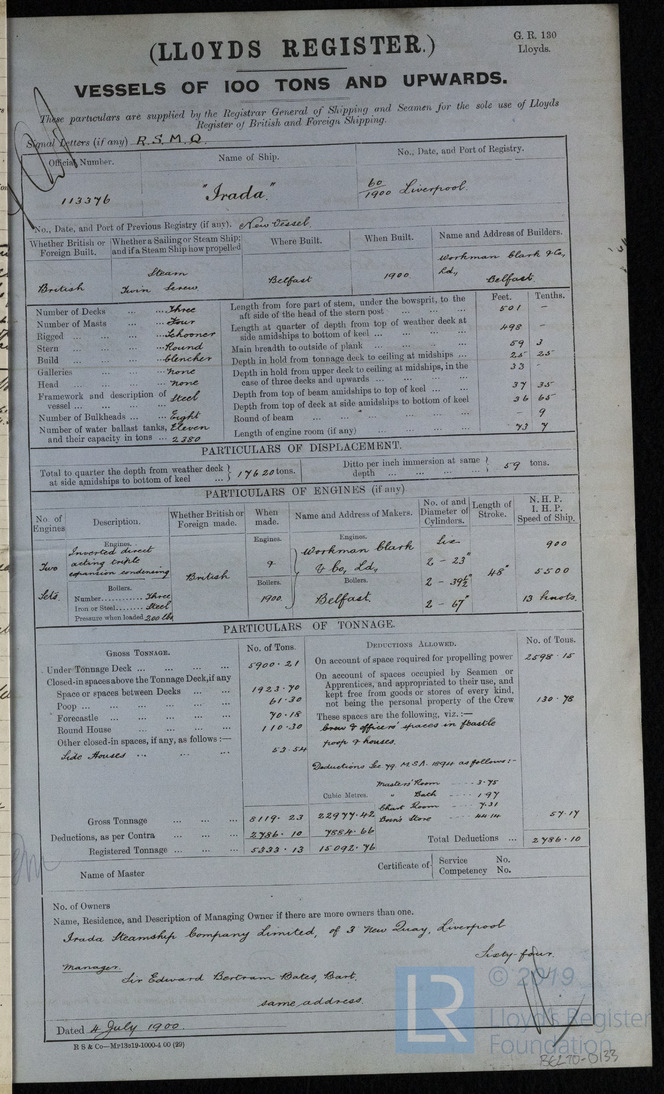 G. R. 130
Lloyds.
(LLOYDS REGISTER.)
VESSELS OF 100 TONS AND UPWARDS.
These particulars are supplied by the Registrar General of Shipping and Seamen for the sole use of Lloyds
Register of British and Foreign Shipping.
Signal Letters (if any) R.S.M.Q.
Official Number. Name of Ship. No., Date, and Port of Registry.
113376 "Irada" 60/1900 Liverpool.
No., Date, and Port of Previous Registry (if any). New Vessel
Whether British or Foreign Built. Whether a Sailing or Steam Ship; and if a Steam Ship how propelled. Where Built. When Built. Name and Address of Builders.
British Steam Twin Screw Belfast 1900 Workman Clark & Co, Ld, Belfast.
Feet. Tenths.
Number of Decks ... ... Three
Number of Masts ... ... Four
Rigged ... ... ... Schooner
Stern ... ... ... Round
Build ... ... ... Clencher
Galleries ... ... ... None
Head ... ... ... None
Framework and description of vessel ... ... ... Steel
Number of Bulkheads ... ... Eight
Number of water ballast tanks, and their capacity in tons ... Eleven 2380
Length from fore part of stem, under the bowsprit, to the aft side of the head of the stern post ... ... ... 501 –
Length at quarter of depth from top of weather deck at side amidships to bottom of keel ... ... ... 498 –
Main breadth to outside of plank ... ... ... 59 3
Depth in hold from tonnage deck to ceiling at midships ... 25 25
Depth in hold from upper deck to ceiling at midships, in the case of three decks and upwards ... ... ... 33
Depth from top of beam amidships to top of keel ... ... 37 35
Depth from top of deck at side amidships to bottom of keel 36 65
Round of beam ... ... ... – 9
Length of engine room (if any) ... ... ... 73 7
PARTICULARS OF DISPLACEMENT.
Total to quarter the depth from weather deck at side amidships to bottom of keel ... ... 17620 tons. Ditto per inch immersion at same depth ... ... ... 59 tons.
PARTICULARS OF ENGINES (if any)
No. of Engines. Description. Whether British or Foreign made. When made. Name and Address of Makers. No. of and Diameter of Cylinders. Length of Stroke. N. H. P. I. H. P. Speed of Ship.
Engines. Engines. Engines.
Two Sets. Inverted direct acting triple expansion condensing British Workman Clark & Co, Ld, Belfast. Six 2 – 23" 2 – 39½" 2 – 67" 48" 900 5500 13 knots.
Boilers. Boilers. Boilers.
Number......... Three
Iron or Steel...... Steel
Pressure when loaded 200 lbs
1900.
PARTICULARS OF TONNAGE.
GROSS TONNAGE. No. of Tons. DEDUCTIONS ALLOWED. No. of Tons.
Under Tonnage Deck ... ... ... ... 5900 . 21
Closed-in spaces above the Tonnage Deck, if any
Space or spaces between Decks ... ... 1923 . 70
Poop ... ... ... ... ... 61 . 30
Forecastle ... ... ... ... 70 . 18
Round House ... ... ... ... 110 . 30
Other closed-in spaces, if any, as follows :—
Side Houses ... ... ... ... 53 . 54
On account of space required for propelling power 2598 . 15
On account of spaces occupied by Seamen or Apprentices, and appropriated to their use, and kept free from goods or stores of every kind, not being the personal property of the Crew 130 . 78
These spaces are the following, viz. :—
Crew & officers' spaces in fcastle poop & houses.
Deductions Sec 79. M.S.A. 1894 as follows :-
Masters' Room ---- 3.75
" Bath ---- 1.97
Chart Room ---- 7.31
Bosn's Store ---- 44.14
57.17
Cubic Metres.
Gross Tonnage ... ... 8119 . 23 22977.42
Deductions, as per Contra ... ... 2786 . 10 7884.66
Total Deductions ... 2786 . 10
Registered Tonnage ... ... 5333 . 13 15092.76
Name of Master Certificate of Service No. Competency No.
No. of Owners
Name, Residence, and Description of Managing Owner if there are more owners than one.
Irada Steamship Company Limited, of 3 New Quay, Liverpool
Sixty-four
Manager. Sir Edward Bertram Bates, Bart.
same address.
Dated 4 July 1900.
R S & Co—
LR
© 2019
Lloyd's Register
Foundation
BEL70-0133